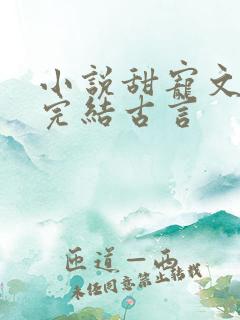 小說甜寵文
完結古言
匝道－西
未經同意禁止轉載